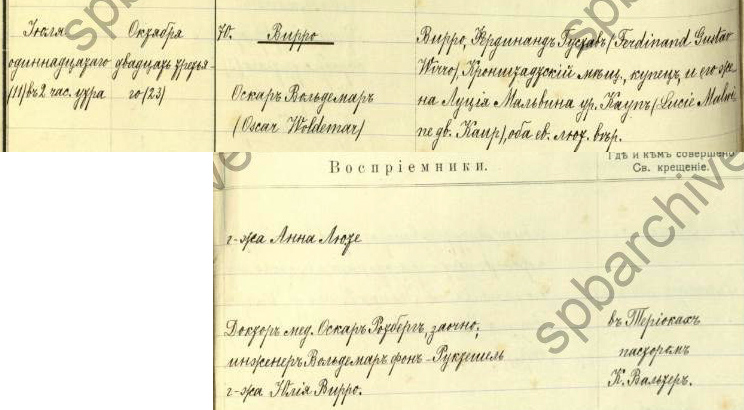 Іюля
одиннадцатаго
(11) въ 2 час. утра
Октября
двадцать третья-
го (23)
70.
Вирро
Оскаръ Вольдемаръ
(Oscar Woldemar)
Вирро, Фердинандъ Густавъ (Ferdinand Gustav
Wirro) Кронштадтскій мѣщ., купец, и его же-
на Луція Мальвина ур. Каупъ (Lucie Malwi-
ne geb. Kaup), оба ев. лют. вѣр.
Воспріемники.
Гдѣ и кѣмъ совершено
Св. крещеніе.
г-жа Анна Люте
Докторъ мед. Оскаръ Розбергъ, заочно;
инженеръ Вольдемаръ фонъ-Руктешель
г-жа Юлія Вирро.
въ Теріокахъ
пасторомъ
К. Вальтеръ.
spbarchive
spbarchive